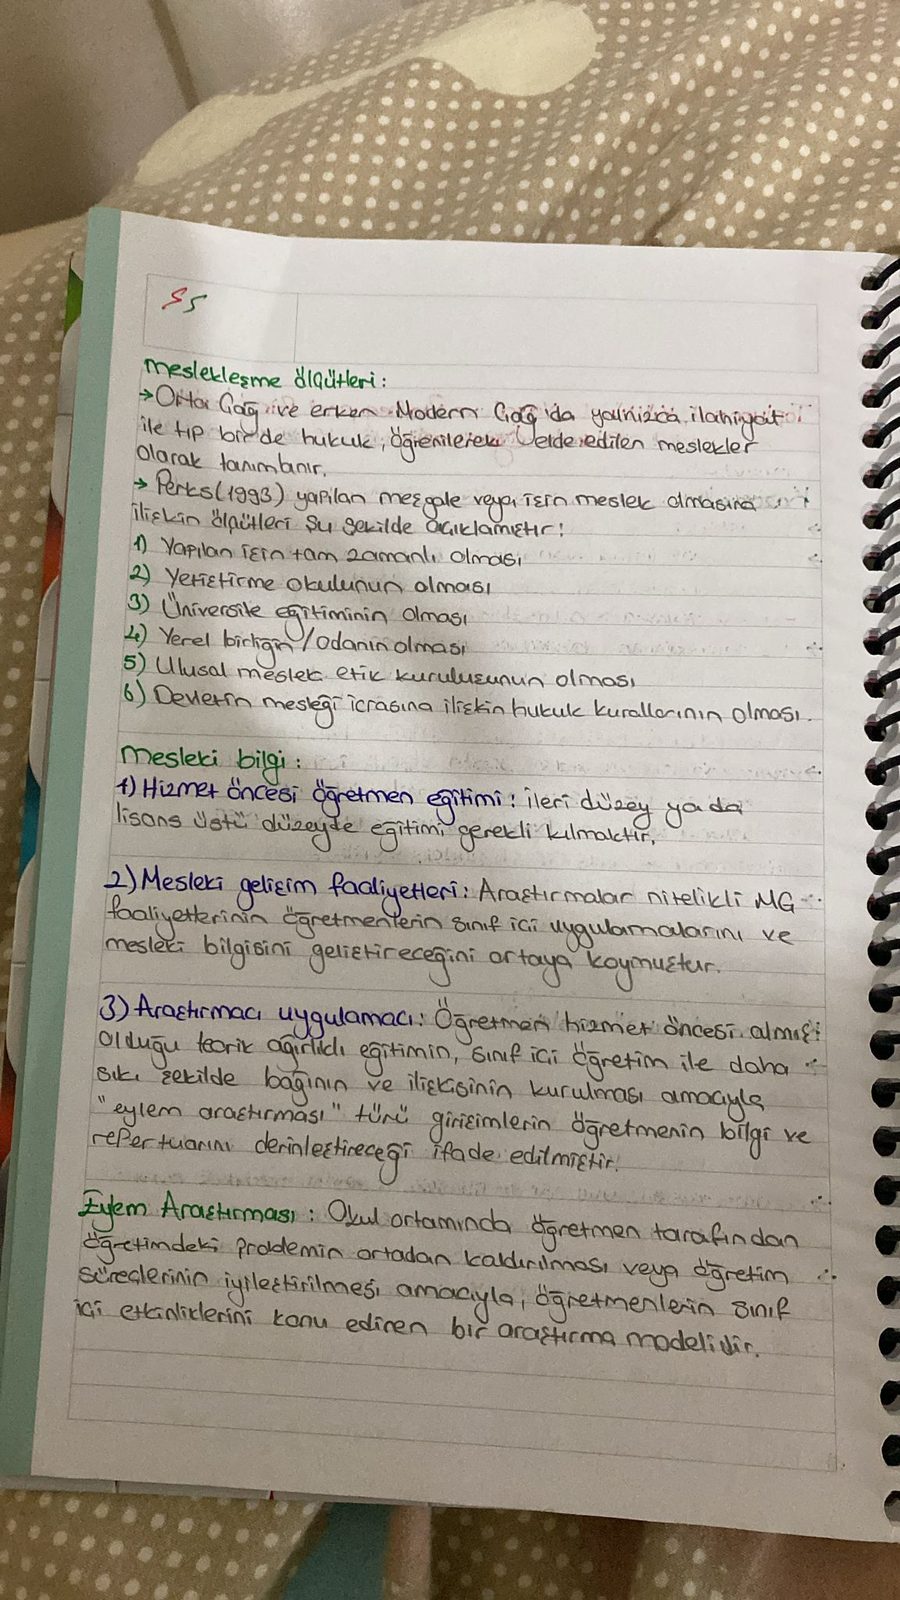 55
Meslekleşme ölçütleri:
→Orta Çağ ve erken Modern Çağ'da yalnızca ilahiyat
ile tıp bir de hukuk, öğrenilerek elde edilen meslekler
olarak tanımlanır.
→ Perks(1993) yapılan meşgale veya işin meslek olmasına
ilişkin ölçütleri şu şekilde açıklamıştır:
1) Yapılan işin tam zamanlı olması
2) Yetiştirme okulunun olması
3) Üniversite eğitiminin olması
4) Yerel birliğin/odanın olması
5) Ulusal meslek etik kuruluşunun olması
6) Devletin mesleği icrasına ilişkin hukuk kurallarının olması.
Mesleki bilgi:
1) Hizmet öncesi öğretmen eğitimi: ileri düzey ya da
lisans üstü düzeyde eğitimi gerekli kılmaktır.
2) Mesleki gelişim faaliyetleri: Araştırmalar nitelikli MG
faaliyetlerinin öğretmenlerin sınıf içi uygulamalarını ve
mesleki bilgisini geliştireceğini ortaya koymuştur.
3) Araştırmacı uygulamacı: Öğretmen hizmet öncesi almış
olduğu teorik ağırlıklı eğitimin, sınıf içi öğretim ile daha
sıkı şekilde bağının ve ilişkisinin kurulması amacıyla
"eylem araştırması" türü girişimlerin öğretmenin bilgi ve
repertuarını derinleştireceği ifade edilmiştir.
Eylem Araştırması: Okul ortamında öğretmen tarafından
öğretimdeki problemin ortadan kaldırılması veya öğretim
süreçlerinin iyileştirilmesi amacıyla, öğretmenlerin sınıf
içi etkinliklerini konu edinen bir araştırma modelidir.